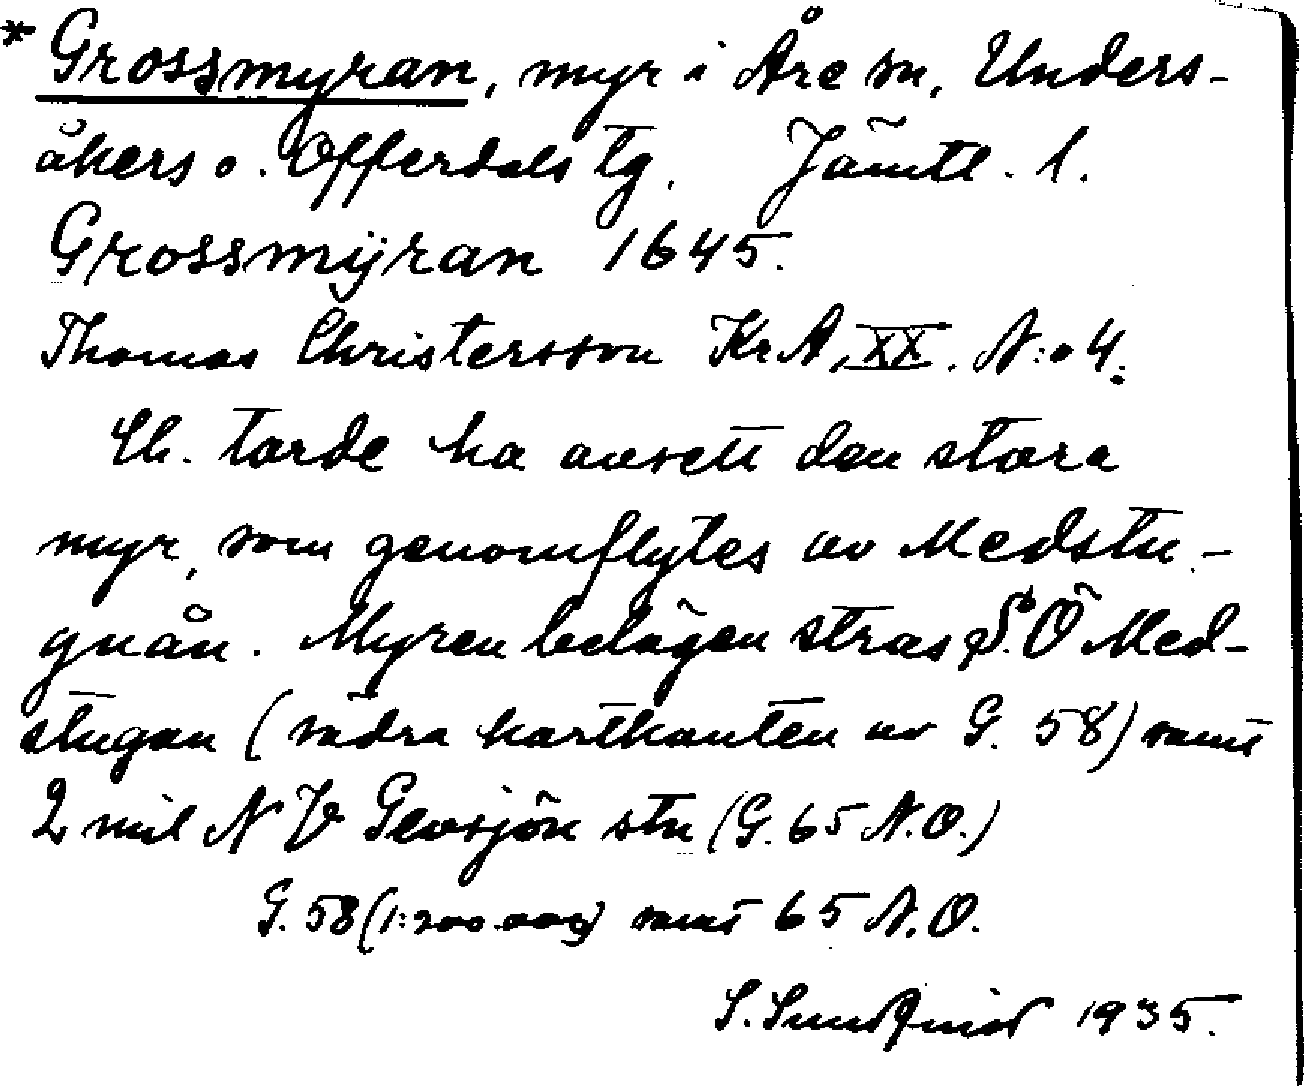 * Grossmyran, myr i Åre sn, Unders-
åkers o. Offerdals tg. Jämtl. l.
Grossmÿran 1645.
Thomas Christersson Kr A, XX. N:o 4.
Ch. torde ha avsett den stora
myr, som genomflytes av Medstu-
guån. Myren belägen strax S.Ö Med-
stugan (södra kartkanten av G. 58) samt
2 mil N V Gevsjön stn (G. 65 N.O.)
G. 58 (1:200.000) samt 65 N.O.
S. Sundqvist 1935.